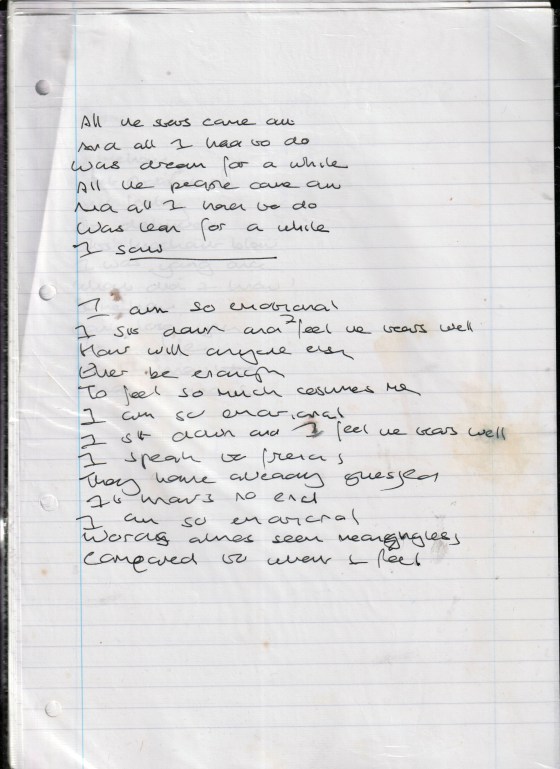 All the stars came out
And all I had to do
Was dream for a while
All the people came out
And all I had to do
Was lean for a while
I saw
I am so emotional
I sit down and I feel the tears well
How will anyone else
Ever be enough
To feel so much consumes me
I am so emotional
I sit down and I feel the tears well
I speak to friends
They have already guessed
It has no end
I am so emotional
Words alone seem meaningless
Compared to what I feel